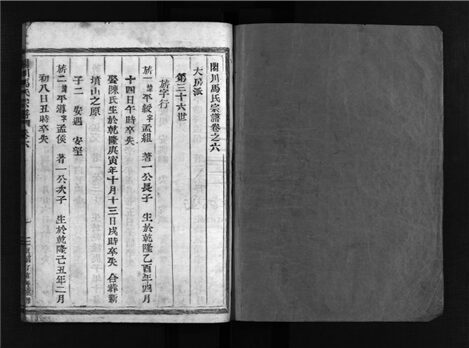 閣川馬氏宗譜卷之六
大房派
第三十六世
菸字行
菸一 諱平綬字孟組 著一公長子 生於乾隆乙酉年四月
十四日午時卒失
娶陳氏生於乾隆庚寅年十月十三日戌時卒失 合葬新
墳山之原
子二 安遇 安望
菸二 諱平 字孟侯 著一公次子 生於乾隆己丑年二月
初八日丑時卒失